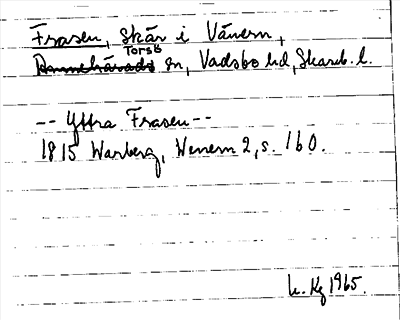 Frasen, skär i Vänern,
Torsö
en, Vadsbo hd, Skarab. l.
-- Yttra Frasen --
1815 Warberg, Wenern 2, s. 160.
h. Kg 1965.